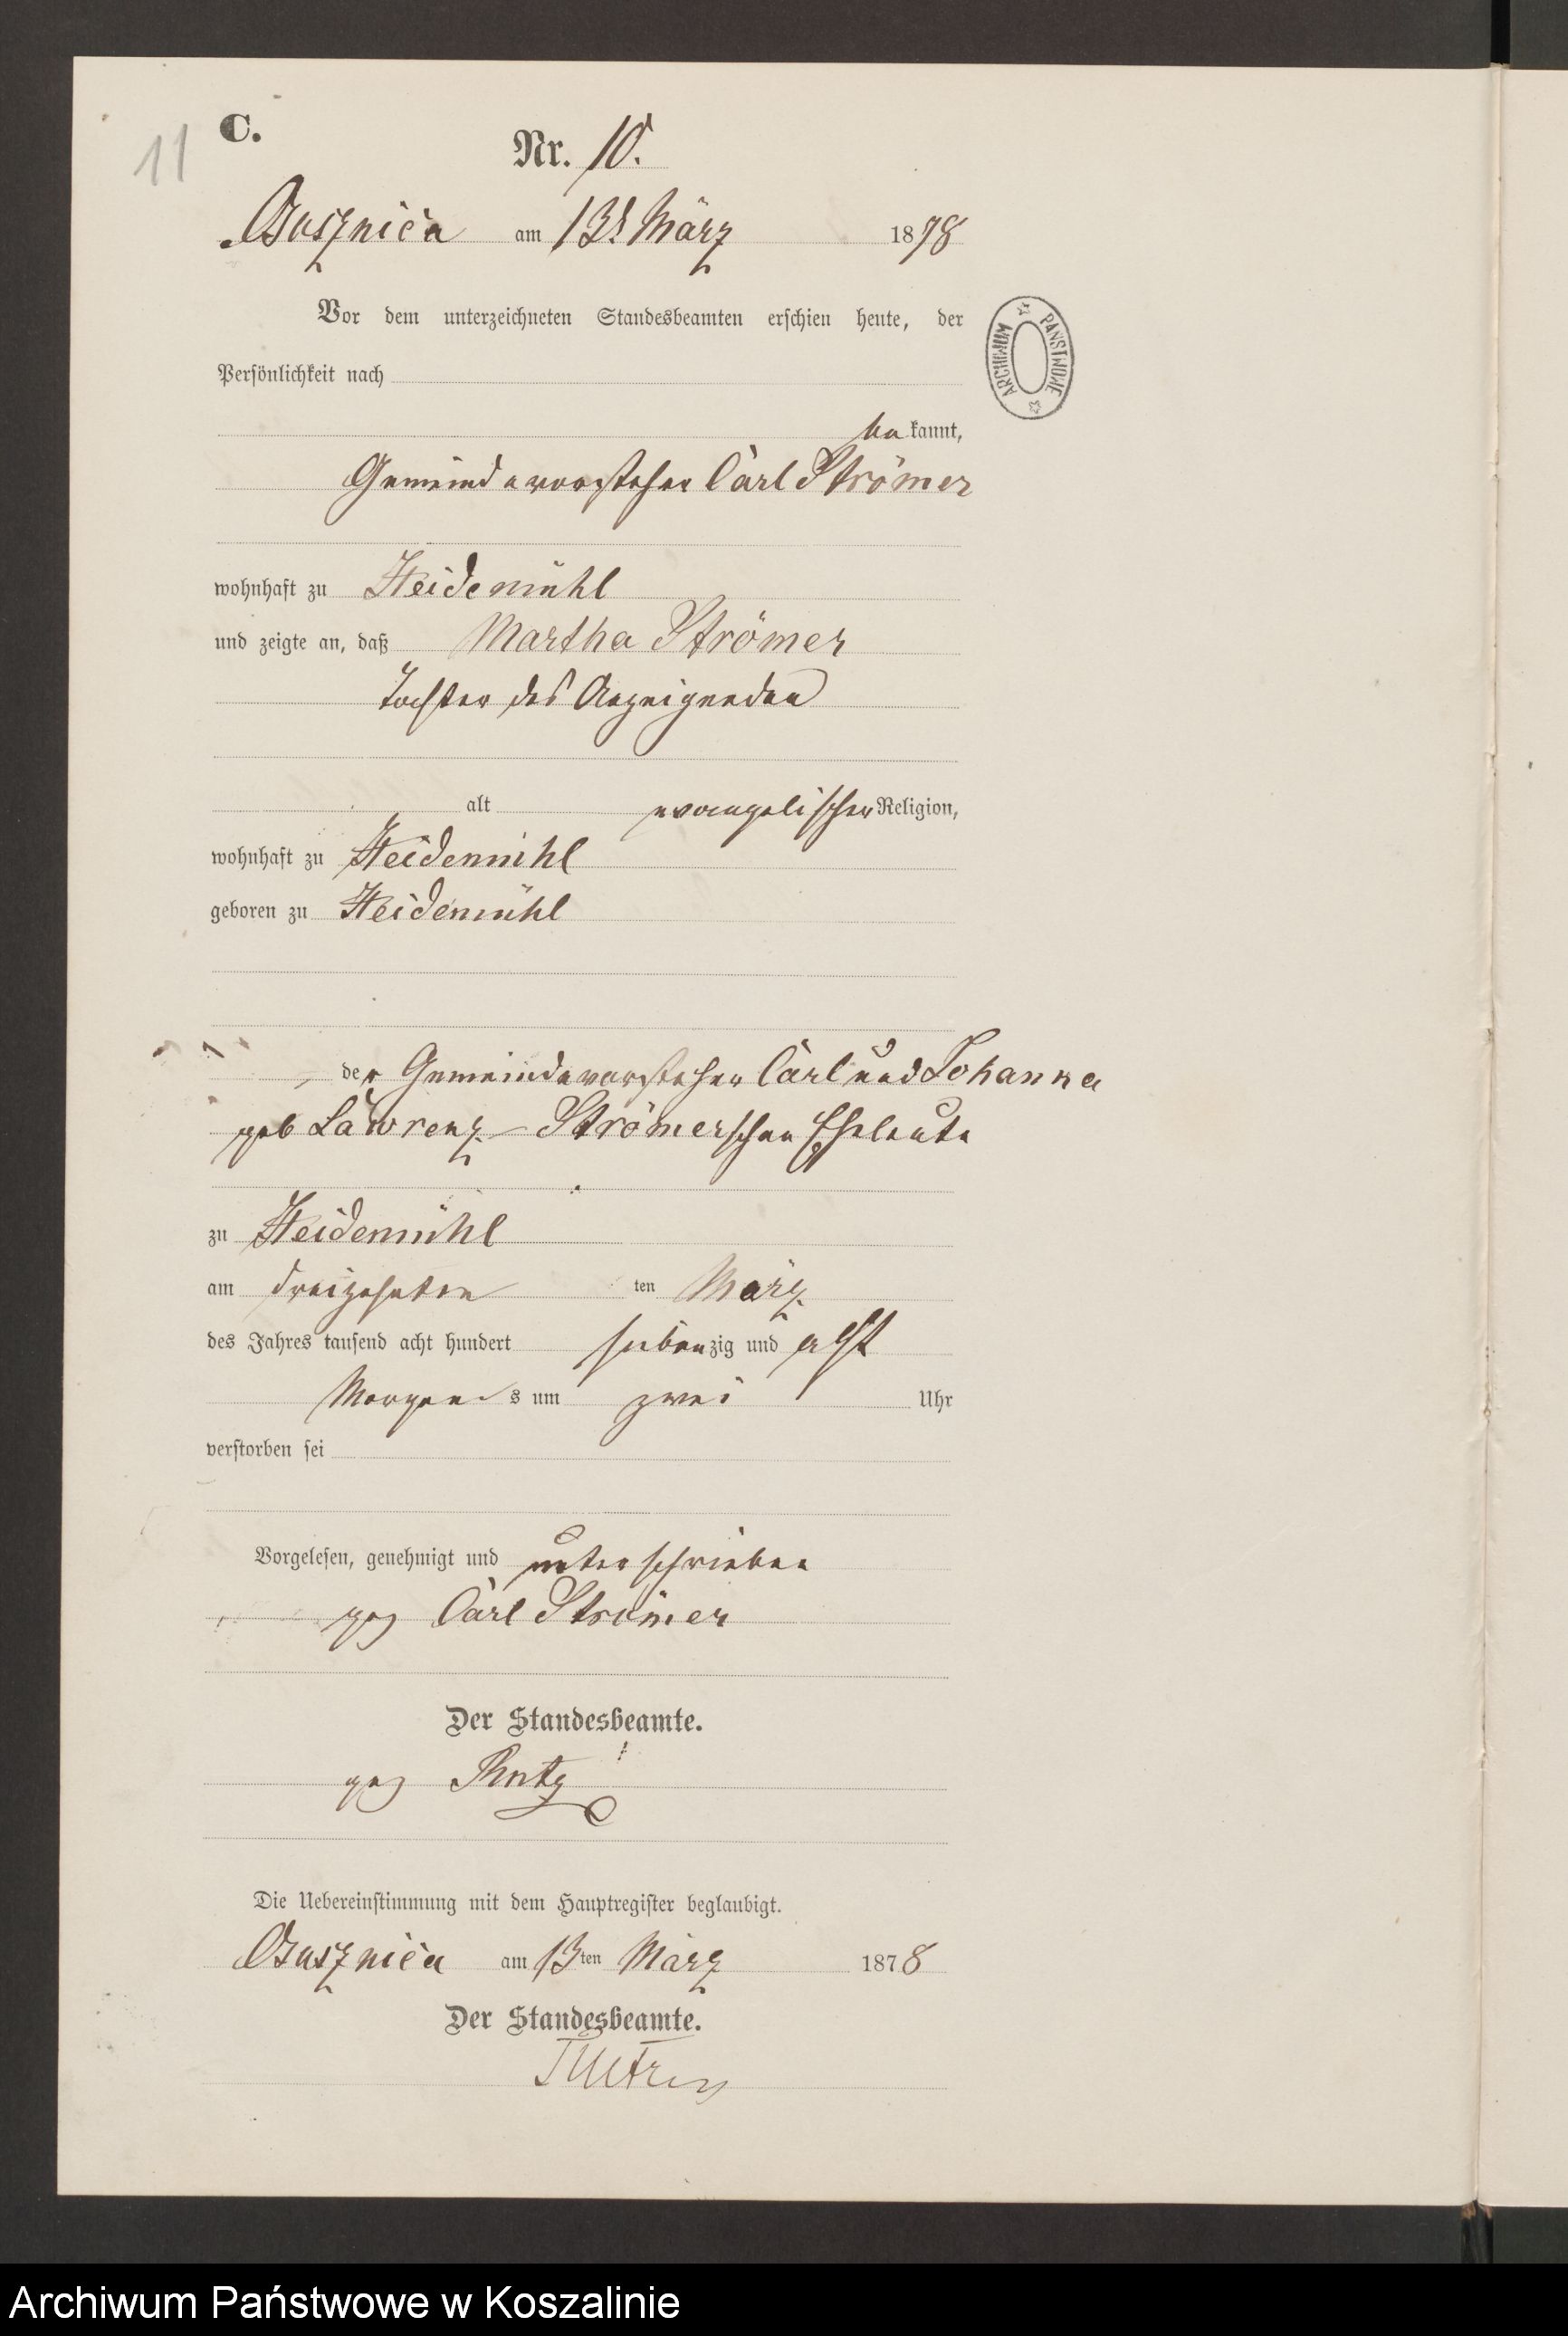 11
C.
Nr. 10.
Czusznica am 13t März 1878
Vor dem unterzeichneten Standesbeamten erschien heute, der
Persönlichkeit nach
be kannt,
Gemeindevorsteher Carl Strömer
wohnhaft zu Heidemühl
und zeigte an, daß Martha Strömer
Tochter des Anzeigenden
alt evangelischer Religion,
wohnhaft zu Heidemühl
geboren zu Heidemühl
der Gemeindevorsteher Carl und Johanna
geb Lawrenz - Strömerschen Eheleute
zu Heidemühl
am dreizehnten ten März
des Jahres tausend acht hundert siebenzig und acht
Morgens um zwei Uhr
verstorben sei
Vorgelesen, genehmigt und unterschrieben
gez Carl Strömer
Der Standesbeamte.
gez
Die Uebereinstimmung mit dem Hauptregister beglaubigt.
Czusznica am 13ten März 1878
Der Standesbeamte.
ARCHIWUM PAŃSTWOWE
Archiwum Państwowe w Koszalinie